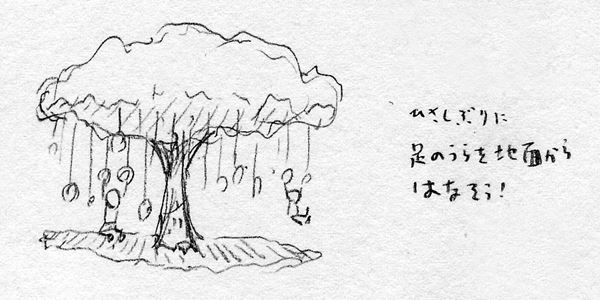 ひさしぶりに
足のうらを地面から
はなそう!